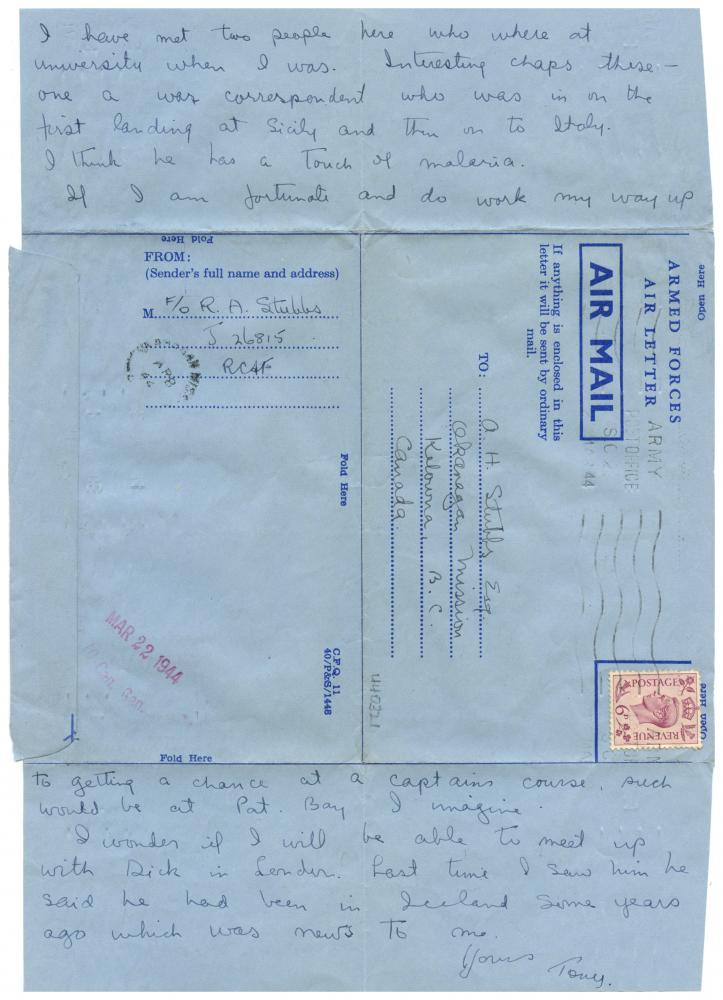 I have met two people here who where at
university when I was. Interesting chaps these –
one a war correspondent who was in on the
first landing at Sicily and then on to Italy.
I think he has a touch of malaria.
If I am fortunate and do work my way up
Fold Here
FROM:
(Sender's full name and address)
M F/O R. A. Stubbs
J 26815
RCAF
APR
44
Fold Here
MAR 22 1944
C.F.Q. 11
40/P&S/1448
Fold Here
Open Here
ARMED FORCES
AIR LETTER
AIR MAIL
If anything is enclosed in this
letter it will be sent by ordinary
mail.
ARMY
POST OFFICE
44
TO:
A. H. Stubbs Esq.
Okanagan Mission
Kelowna, B.C.
Canada.
440321
Open Here
POSTAGE
6D
REVENUE
to getting a chance at a captains course, such
would be at Pat. Bay I imagine.
I wonder if I will be able to meet up
with Dick in London. Last time I saw him he
said he had been in Iceland some years
ago which was news to me.
Yours
Tony.